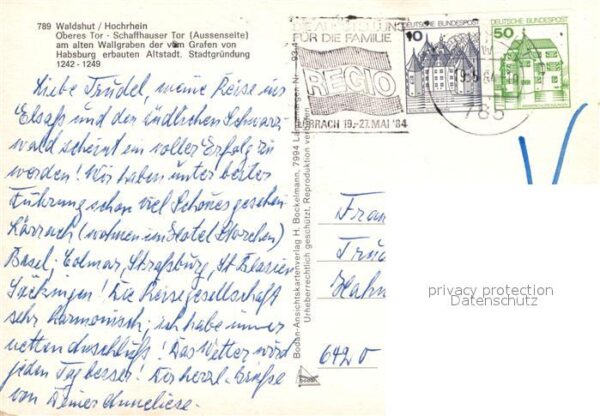 789 Waldshut / Hochrhein
Oberes Tor - Schaffhauser Tor (Aussenseite)
am alten Wallgraben der vom Grafen von
Habsburg erbauten Altstadt. Stadtgründung
1242 - 1249
Liebe Trudel, meine Reise ins
Elsaß und den südlichen Schwarz-
wald scheint ein voller Erfolg zu
werden! Wir haben unter bester
Führung schon viel Schönes gesehen
Lörrach (wohnen im Hotel Storchen)
Basel, Colmar, Straßburg, St. Blasien
Säckingen! Die Reisegesellschaft
sehr harmonisch, ich habe immer
netten Anschluß! Das Wetter wird
jeden Tag besser! Vorherzl. Grüße
von Deiner Anneliese.
Bodan-Ansichtskartenverlag H. Bockelmann, 7994 Langenargen Nr.
Urheberrechtlich geschützt. Reproduktion verboten
FÜR DIE FAMILIE
REGIO
LÖRRACH 19.-27. MAI '84
DEUTSCHE BUNDESPOST
10
DEUTSCHE BUNDESPOST
50
785
Frau
Hahn
6420
privacy protection
Datenschutz